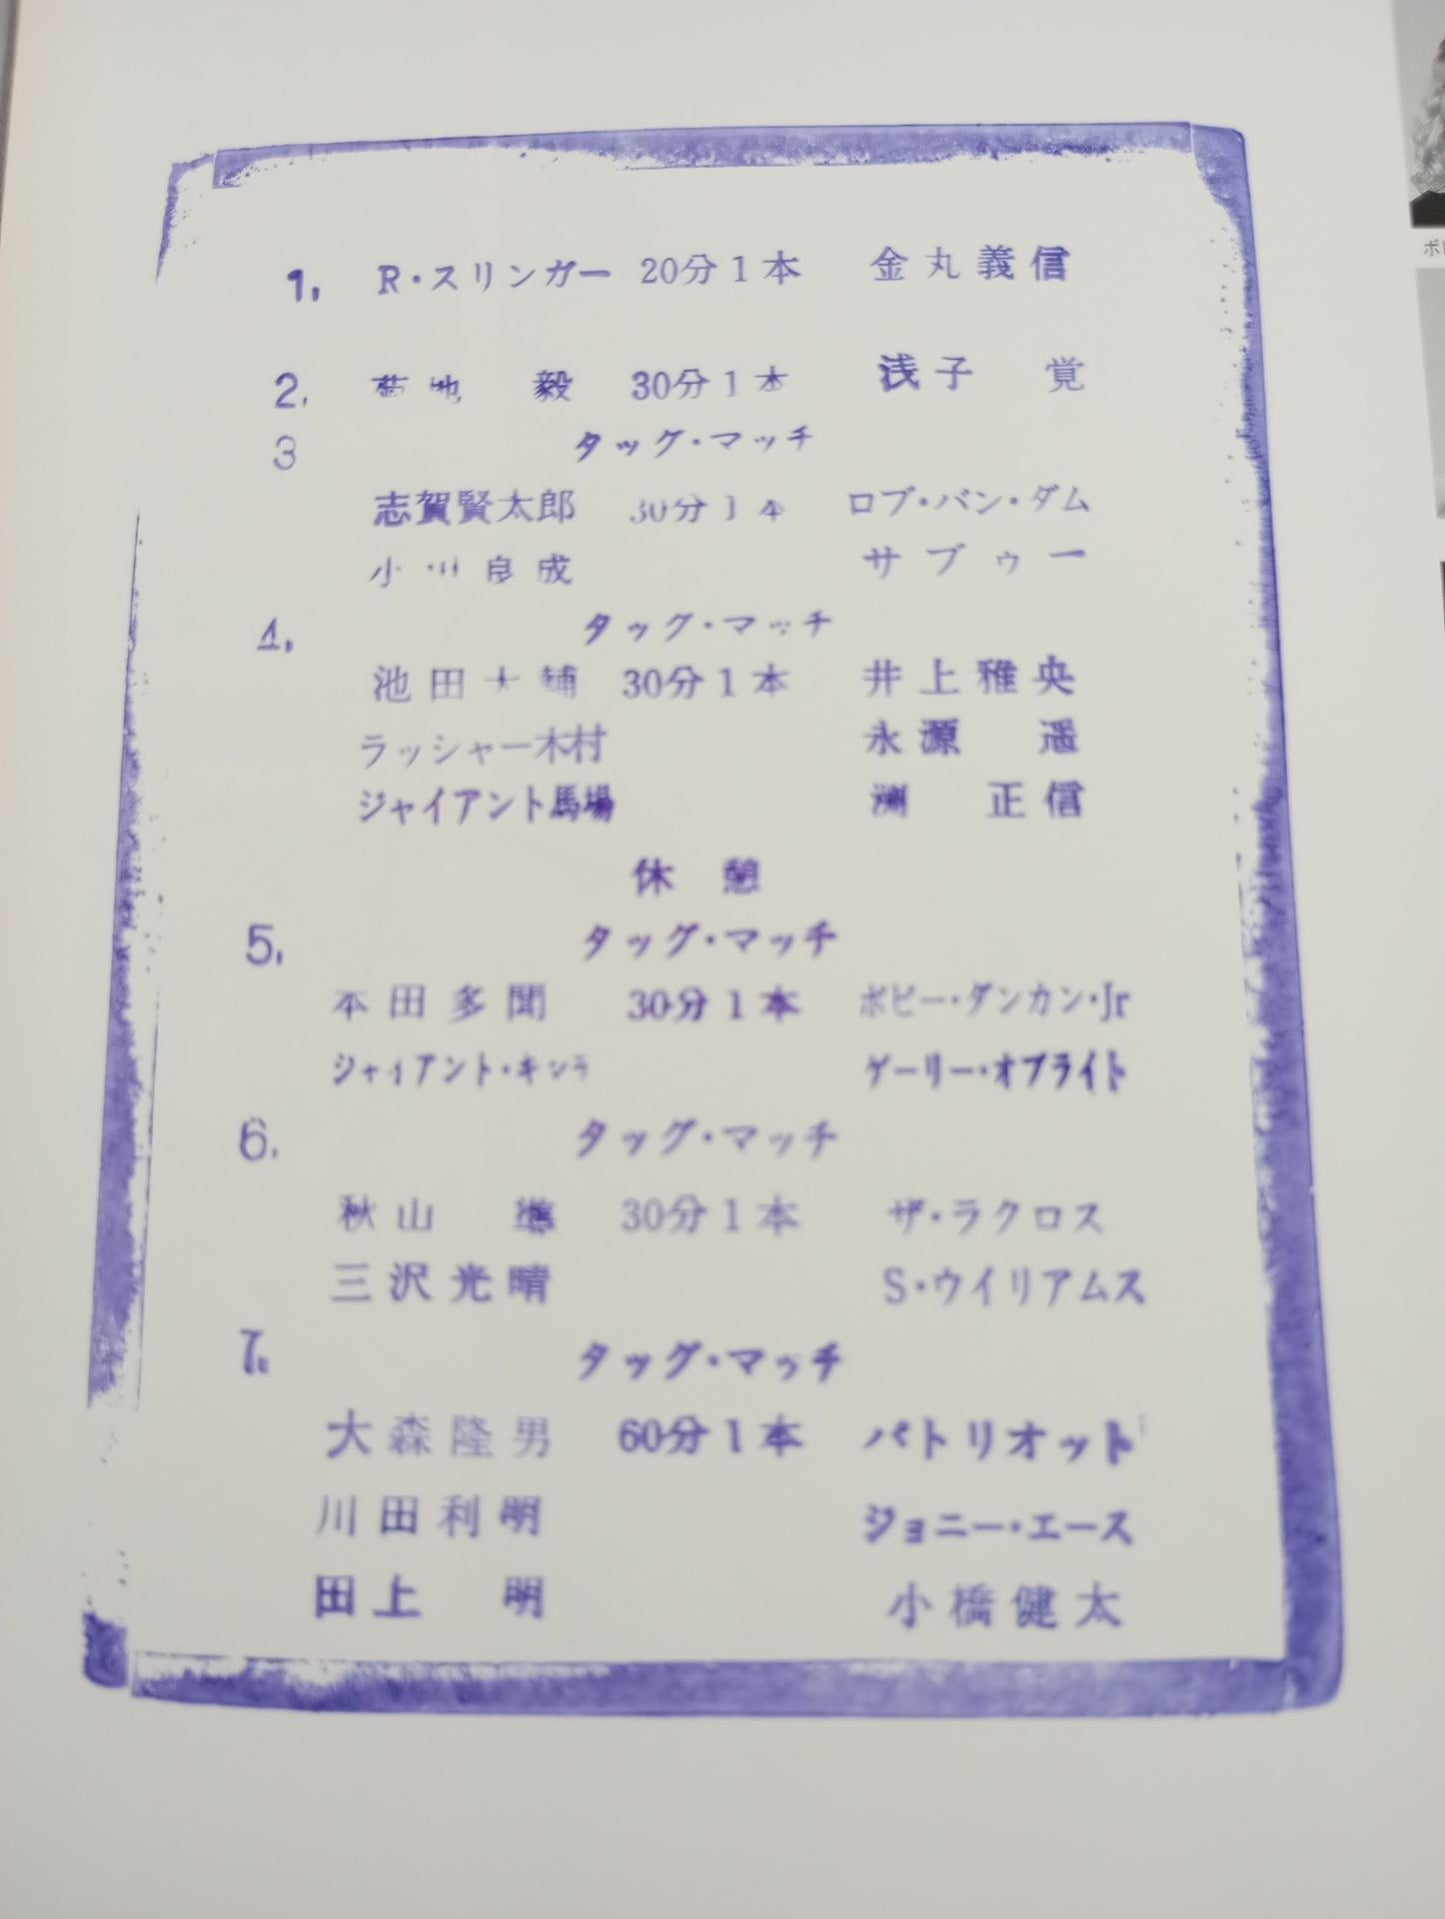 1. R・スリンガー 20分1本 金丸義信
2. 菊地 毅 30分1本 浅子 覚
3 タッグ・マッチ
志賀賢太郎 30分1本 ロブ・バン・ダム
小川良成 サブゥー
4. タッグ・マッチ
池田大輔 30分1本 井上雅央
ラッシャー木村 永源 遥
ジャイアント馬場 渕 正信
休憩
タッグ・マッチ
5. 本田多聞 30分1本 ボビー・ダンカン・Jr
ジャイアント・キマラ ゲーリー・オブライト
6. タッグ・マッチ
秋山 準 30分1本 ザ・ラクロス
三沢光晴 S・ウイリアムス
7. タッグ・マッチ
大森隆男 60分1本 パトリオット
川田利明 ジョニー・エース
田上 明 小橋健太